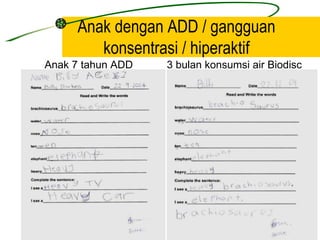 Anak dengan ADD / gangguan
konsentrasi / hiperaktif
Anak 7 tahun ADD
3 bulan konsumsi air Biodisc
Name Date 22 9 2004
Read and Write the words
brachiosaurus
water water
nose Nose
ten en
elephant elephant
heavy Heavy
Complete the sentence:
I see a Heavy TV
I see a Heavy Car
Name Billy Date
Read and Write the words
brachiosaurus brachio Saurus
water water
nose nose
ten ten
elephant elephant
heavy heavy
Complete the sentence:
I see a heavy brachiosaurus.
I see a elephant.
brachiosaurus